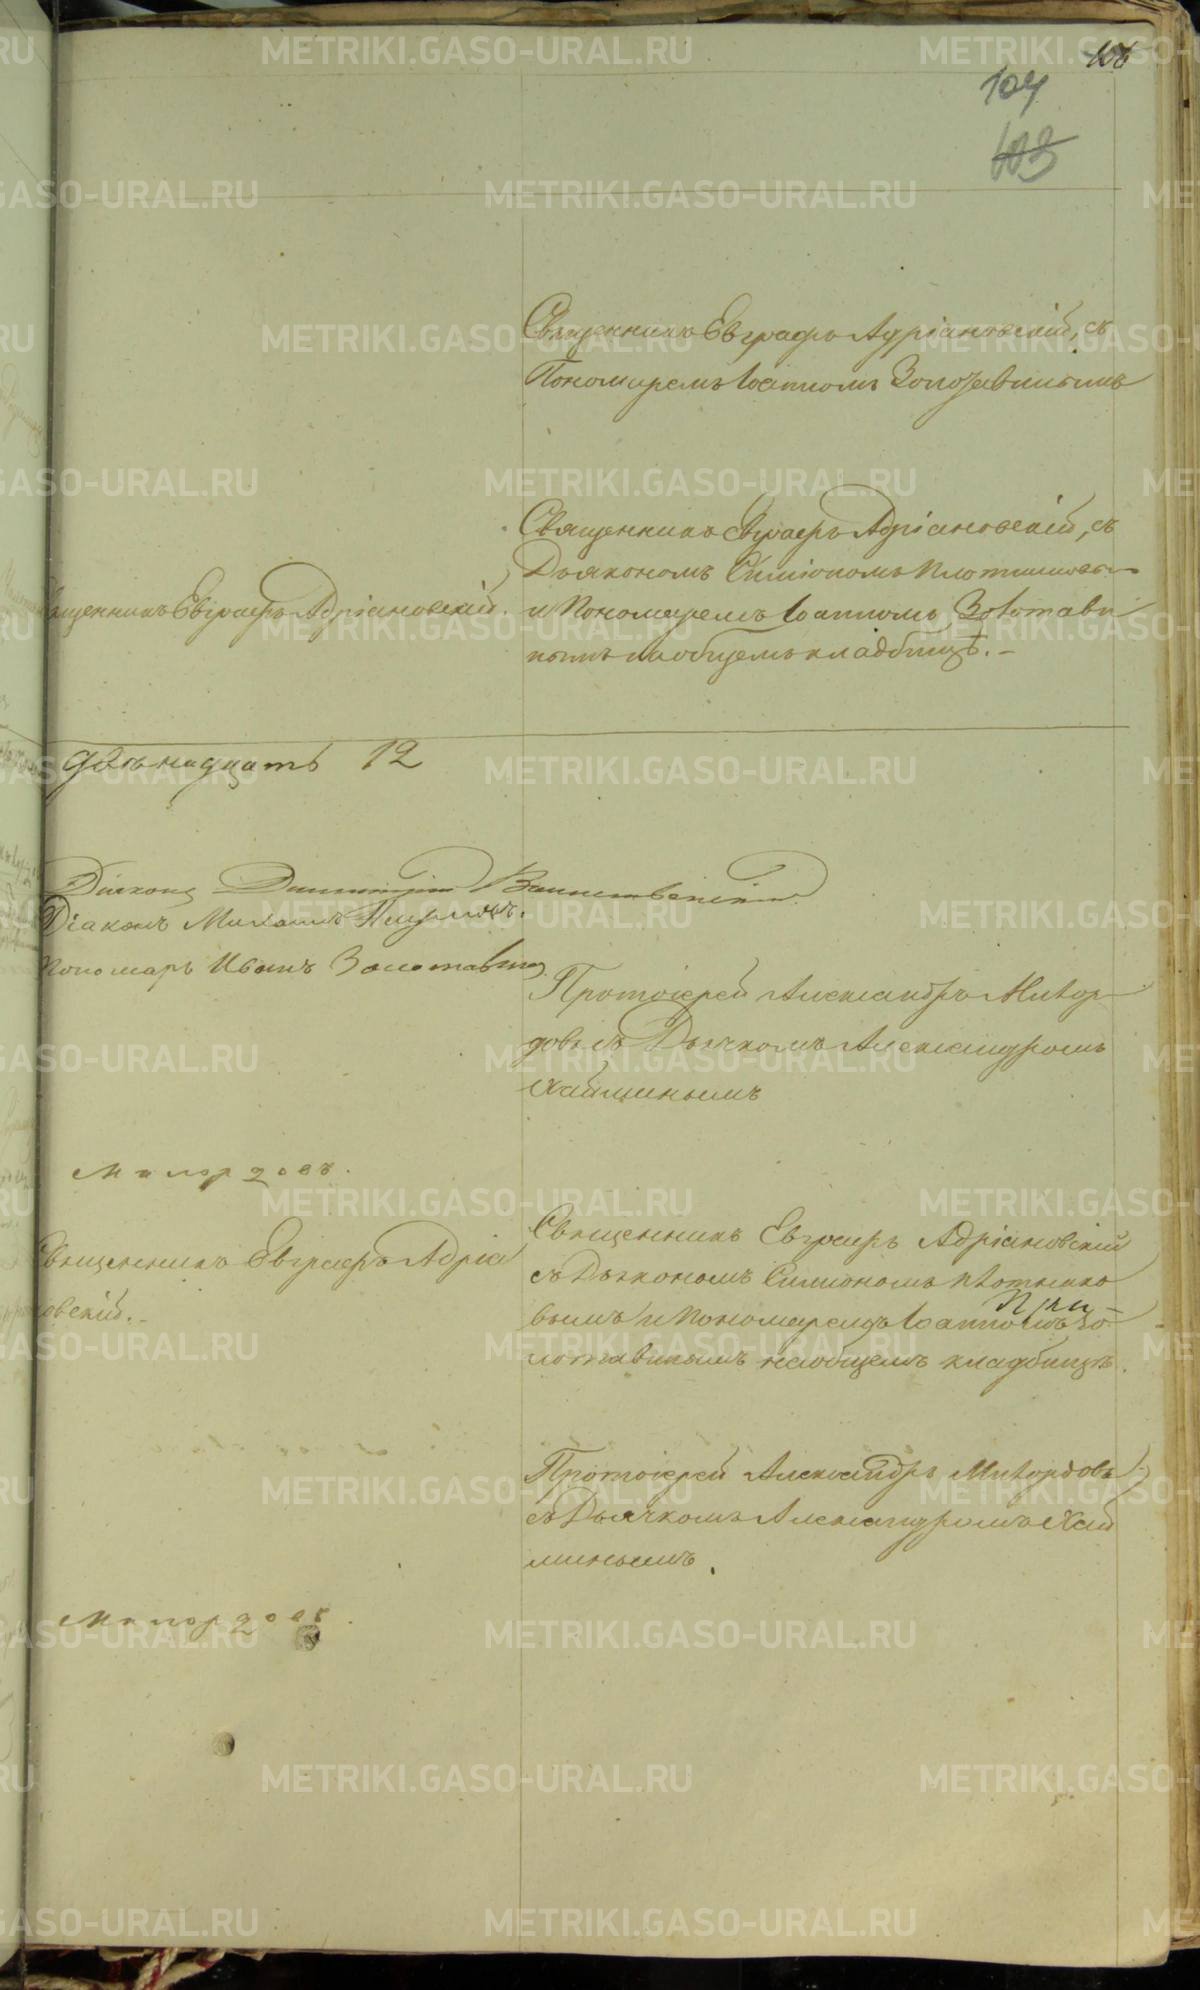 104
103
Священникъ Евграфъ Адріановскій, съ
Пономаремъ Іоанномъ Золотавинымъ
Священникъ Евграфъ Адріановскій, съ
Дьякономъ Симіономъ Плотниковы
и Пономаремъ Іоанномъ Золотави
нымъ на общемъ кладбищѣ. –
Священникъ Евграфъ Адріановскій.
двѣнадцать 12
Діаконъ Димитрій
Діаконъ Михаилъ
Пономарь Иванъ Золотавинъ
Протоіерей Александръ Милор
довъ съ Дьячкомъ Александромъ
Хайминымъ
Милордовъ.
Священникъ Евграфъ Адріа
новскій. –
Священникъ Евграфъ Адріановскій
съ Дьякономъ Симиономъ Плотнико
вымъ и Пономаремъ Іоанномъ Зо
лотавинымъ на общемъ кладбищѣ.
При –
Протоіерей Александръ Милордовъ
съ Дьячкомъ Александромъ Хай
минымъ.
Милордовъ.
METRIKI.GASO-URAL.RU